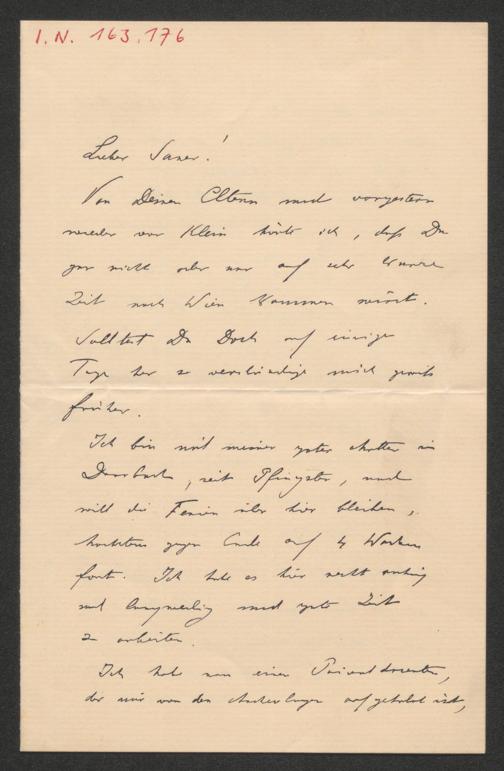 I. N. 163.176
Lieber Sauer!
Von Deinen Eltern und vorgestern
wieder von Klein hörte ich, daß Du
gar nicht oder nur auf sehr kurze
Zeit nach Wien kommen wirst.
Solltest Du Doch auf einige
Tage her so verständige mich
früher.
Ich bin mit meiner guten Mutter in
seit Pfingsten, und
will die Ferien über hier bleiben,
höchstens gegen Ende auf 4 Wochen
fort. Ich habe es hier recht ruhig
und langweilig und gute Zeit
zu arbeiten.
Ich habe nun einen Privatdocenten,
der mir von den aufgehalst ist,